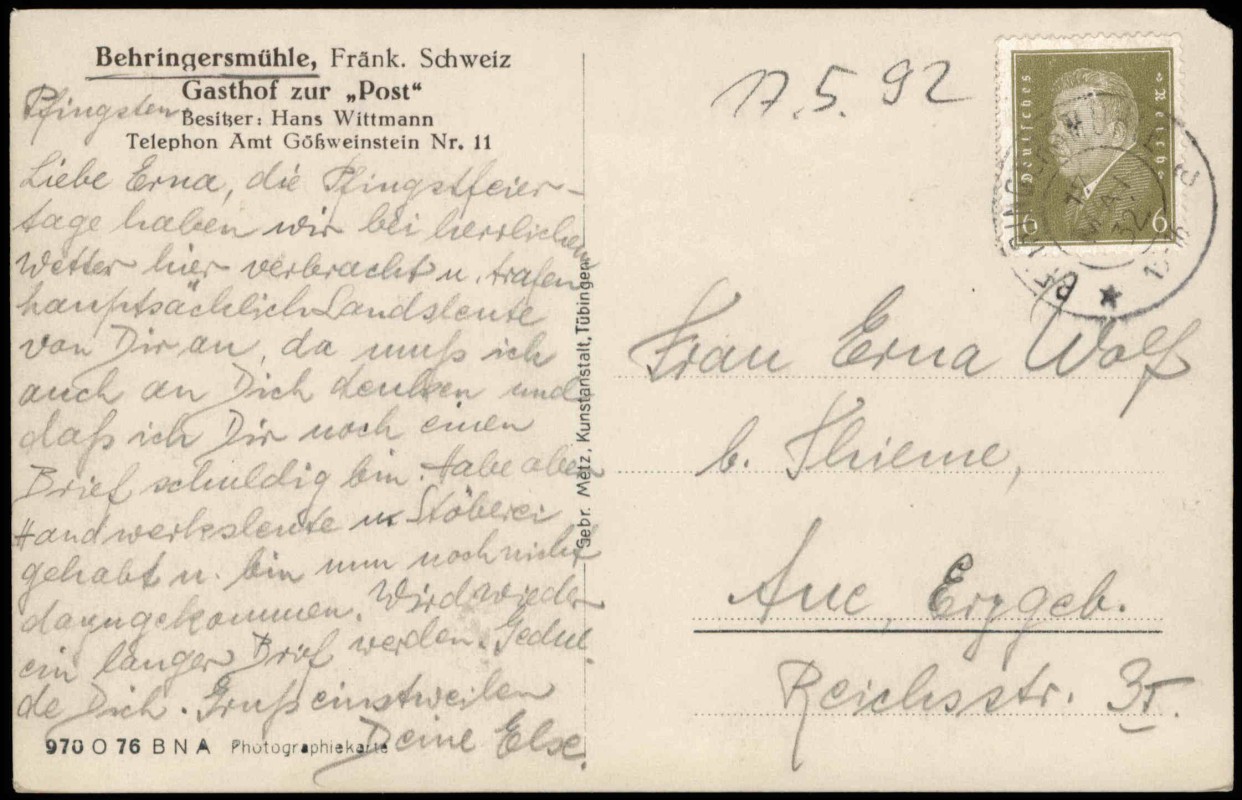 Behringersmühle, Fränk. Schweiz
Gasthof zur „Post“
Pfingsten
Besitzer: Hans Wittmann
Telephon Amt Gößweinstein Nr. 11
Liebe Erna, die Pfingstfeier-
tage haben wir bei herrlichem
Wetter hier verbracht u. trafen
hauptsächlich Landsleute
von Dir an, da muß ich
auch an Dich denken und
daß ich Dir noch einen
Brief schuldig bin. Habe aber
Handwerksleute u. Stöberei
gehabt u. bin nun noch nicht
dazugekommen. Wird wieder
ein langer Brief werden. Gedul
de Dich. Gruß einstweilen
Deine Else.
970 O 76 B N A Photographiekarte
Gebr. Metz, Kunstanstalt, Tübingen.
17.5.92
Deutsches Reich
6 6
17
MAI
32
Frau Erna Wolf
b. Thieme,
Aue, Erzgeb.
Reichsstr.